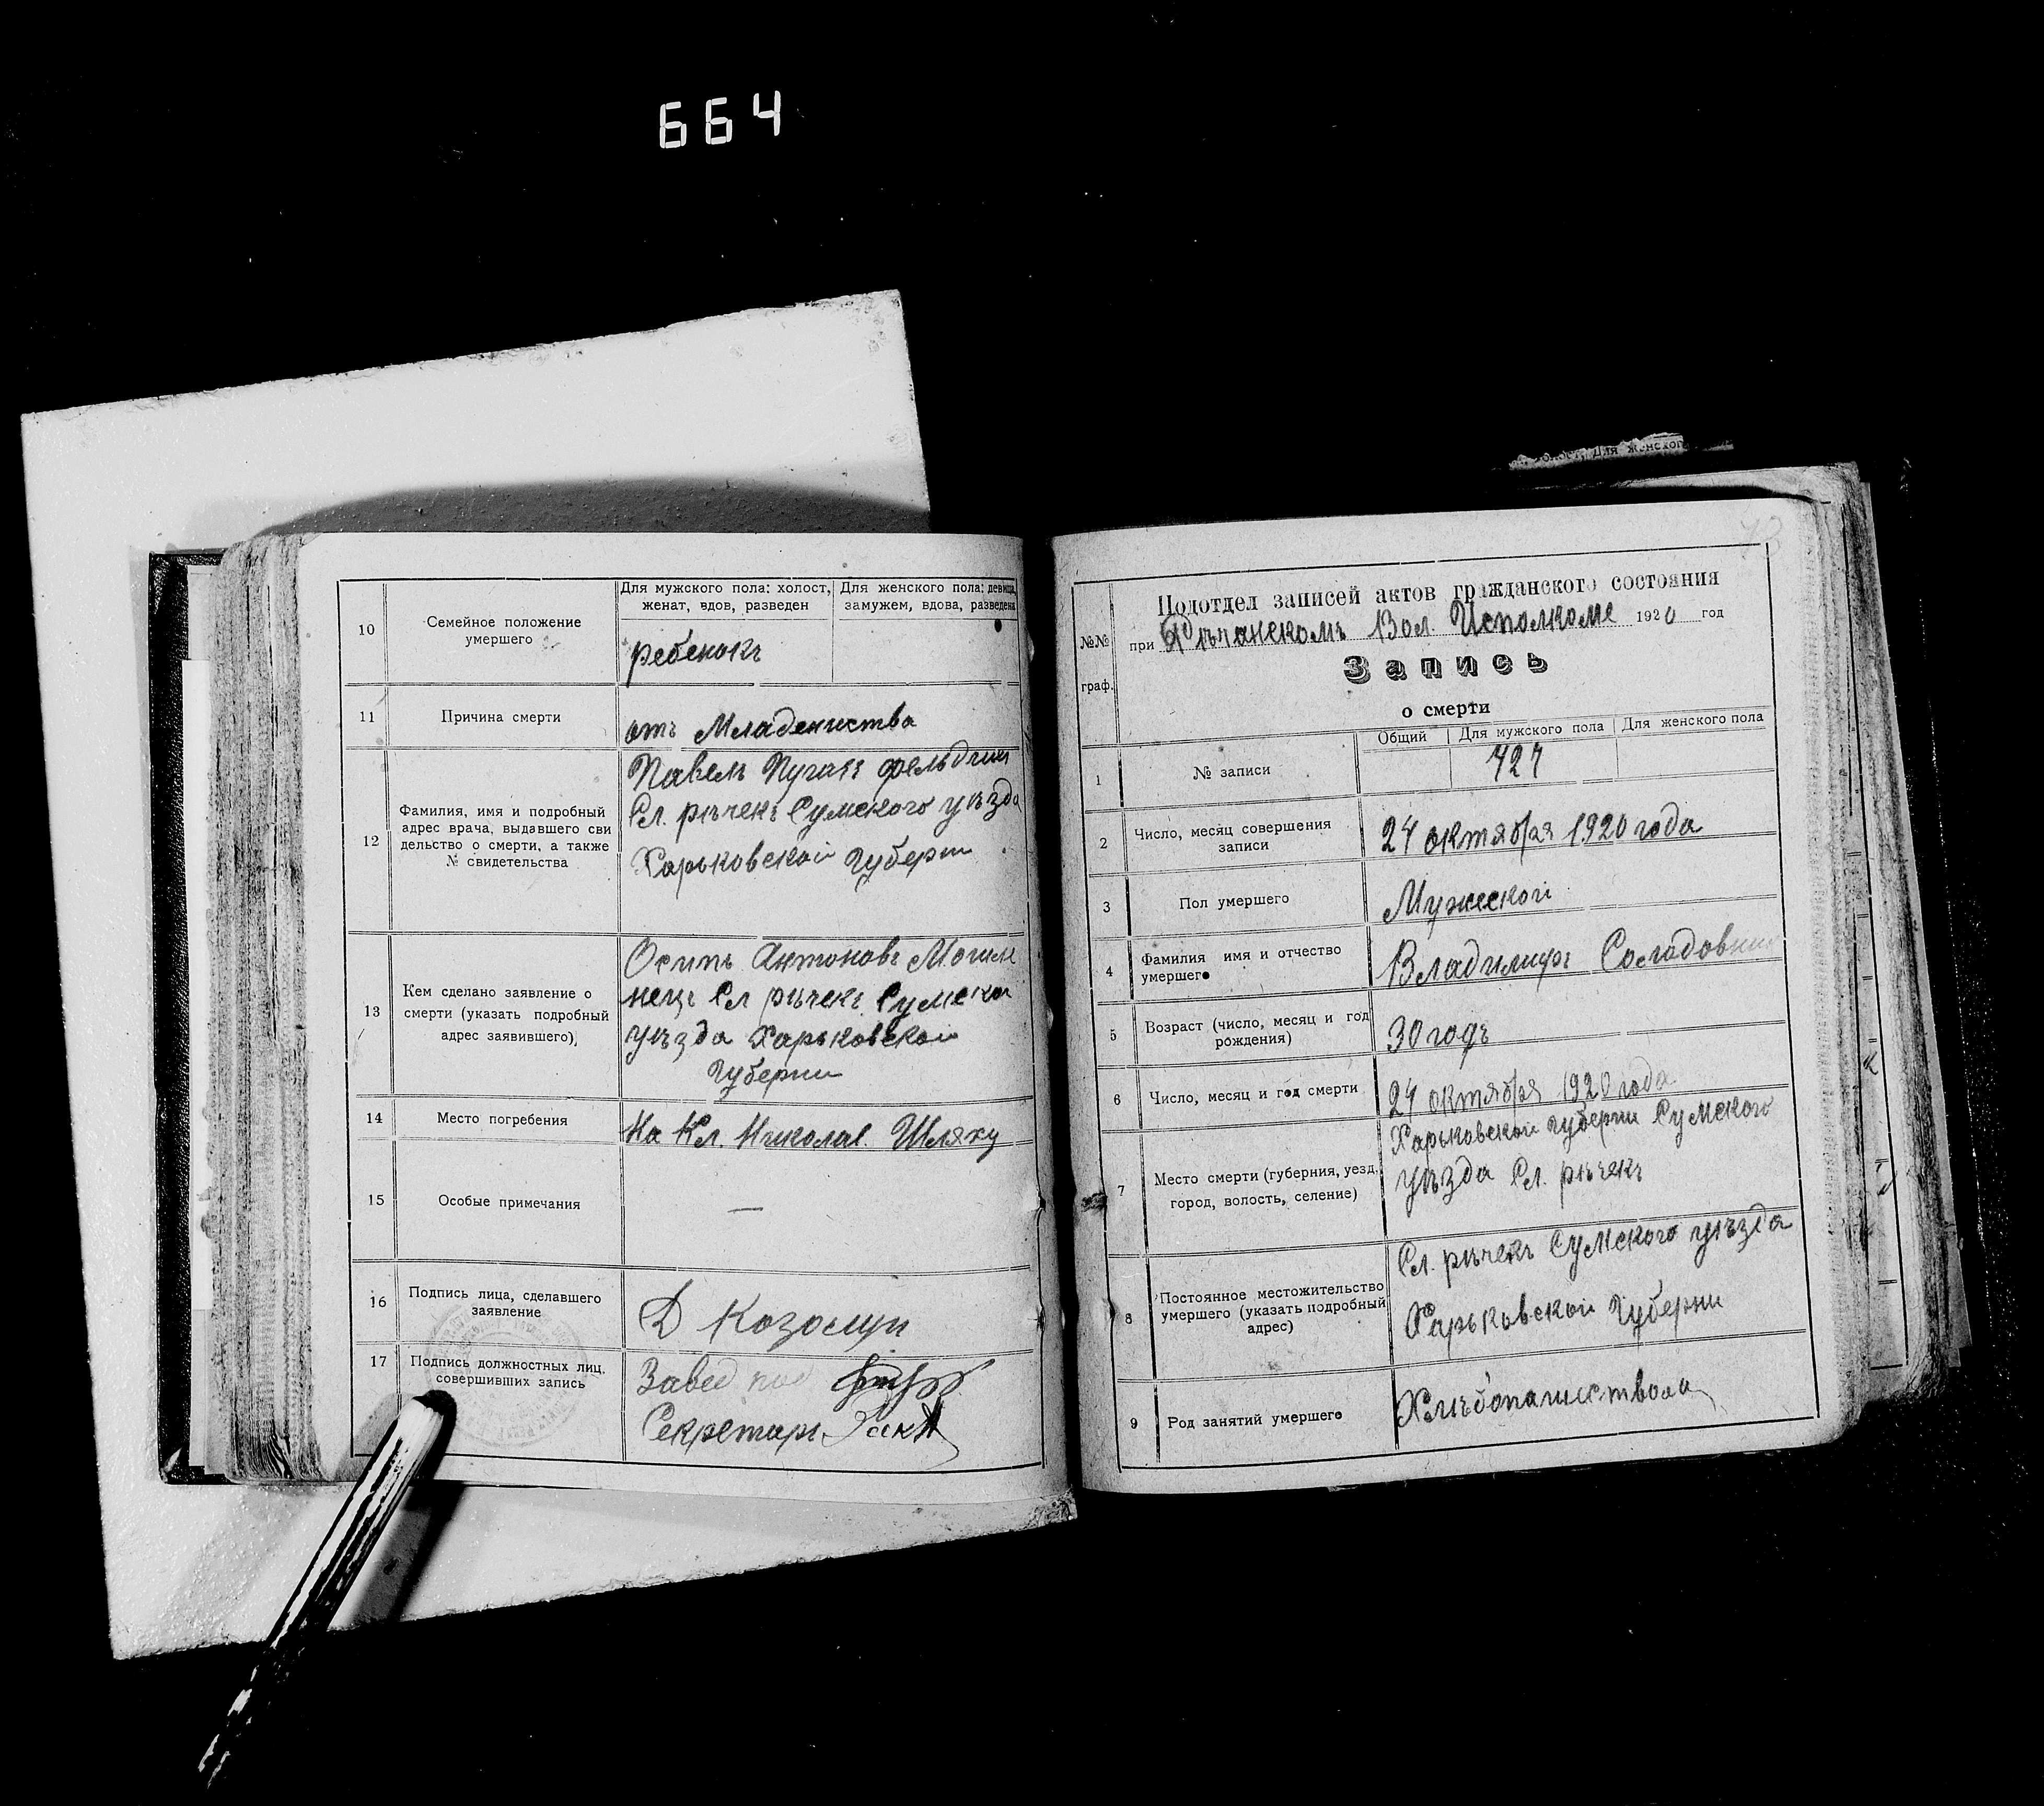 664
для женског
10
Семейное положение
умершего
Для мужского пола: холост,
женат, вдов, разведен
Для женского пола: девица,
замужем, вдова, разведена
ребенокъ
11
Причина смерти
отъ Младенчиства
12
Фамилия, имя и подробный
адрес врача, выдавшего сви
дельство о смерти, а также
№ свидетельства
Павелъ Пугачъ фельдшер
Сл. рѣчекъ Сумского уѣзда
Харьковской губерни
13
Кем сделано заявление о
смерти (указать подробный
адрес заявившего)
Осипъ Антоновъ Могиле
нецъ Сл рѣчекъ Сумско
уѣзда Харьковской
Губерни
14
Место погребения
На Кл. Николаев. Шляху
15
Особые примечания
—
16
Подпись лица, сделавшего
заявление
Д
17
Подпись должностных лиц,
совершивших запись
Завед под
Секретарь
№№
граф.
Подотдел записей актов гражданского состояния
при Рѣчанскомъ Вол. Исполкоме 1920 год
Запись
о смерти
Общий
Для мужского пола
Для женского пола
1
№ записи
727
2
Число, месяц совершения
записи
24 октября 1920 года
3
Пол умершего
Мужеской
4
Фамилия имя и отчество
умершего
Владимиръ Солодовник
5
Возраст (число, месяц и год
рождения)
30 годъ
6
Число, месяц и год смерти
24 октября 1920 года
7
Место смерти (губерния, уезд,
город, волость, селение)
Харьковской губерни Сумского
уѣзда Сл. рѣчекъ
8
Постоянное местожительство
умершего (указать подробный
адрес)
Сл. рѣчекъ Сумского уѣзда
Харьковской Губерни
9
Род занятий умершего
Хлѣбопашествола